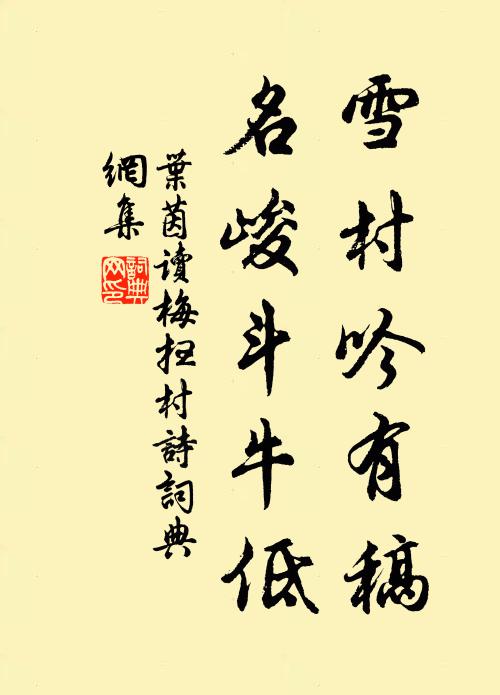 雪村吟有稿
名峻斗牛低
葉茵讀梅扫村詩詞典
網集
詞典網印